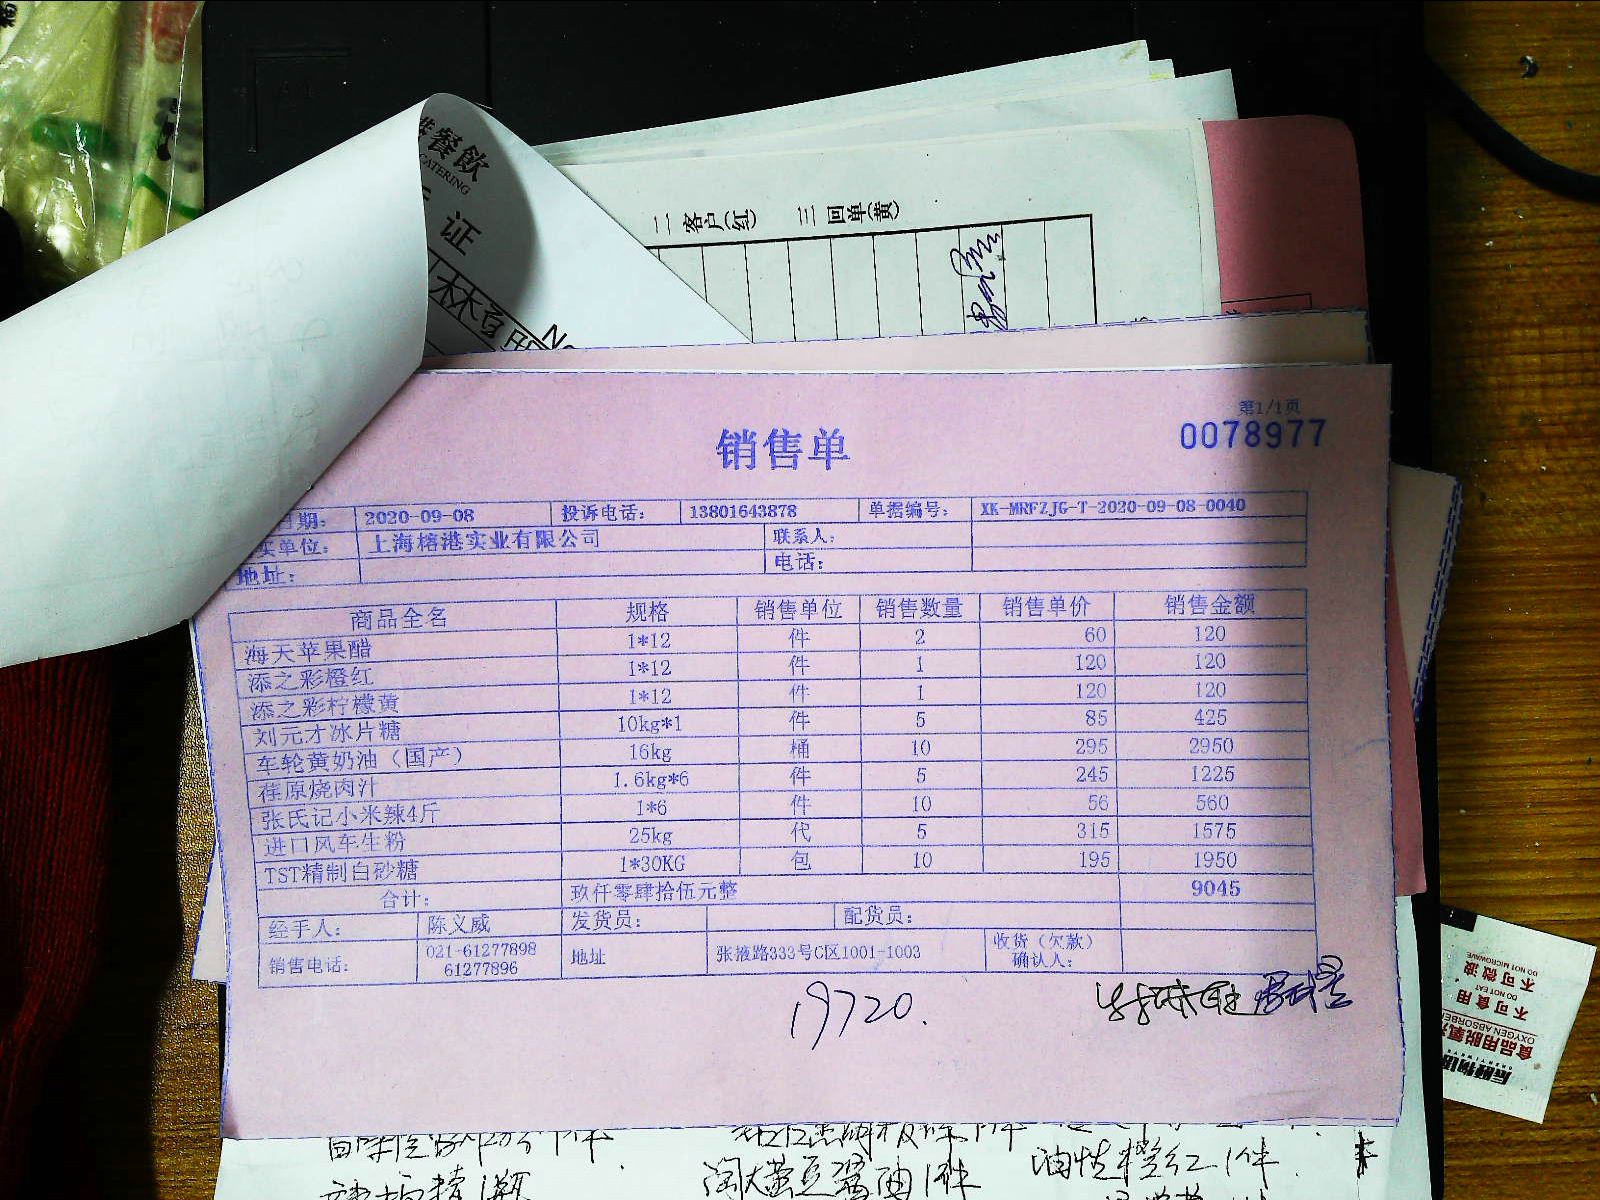 餐飲
CATERING
证
二 客户(红) 三 回单(黄)
第1/1页
销售单
0078977
日期: 2020-09-08 投诉电话: 13801643878 单据编号: XK-MRFZJG-T-2020-09-08-0040
买单位: 上海榕港实业有限公司 联系人:
地址: 电话:
商品全名 规格 销售单位 销售数量 销售单价 销售金额
海天苹果醋 1*12 件 2 60 120
添之彩橙红 1*12 件 1 120 120
添之彩柠檬黄 1*12 件 1 120 120
刘元才冰片糖 10kg*1 件 5 85 425
车轮黄奶油（国产） 16kg 桶 10 295 2950
荏原烧肉汁 1.6kg*6 件 5 245 1225
张氏记小米辣4斤 1*6 件 10 56 560
进口风车生粉 25kg 代 5 315 1575
TST精制白砂糖 1*30KG 包 10 195 1950
合计: 玖仟零肆拾伍元整 9045
经手人: 陈义威 发货员: 配货员:
销售电话: 021-61277898 地址 张掖路333号C区1001-1003 收货（欠款）
61277896 确认人:
19720.
淘大黄豆酱油1件 油性橙红1件
不可微波
DO NOT MICROWAVE
不可食用
DO NOT EAT
食品用脱氧剂
OXYGEN ABSORBER